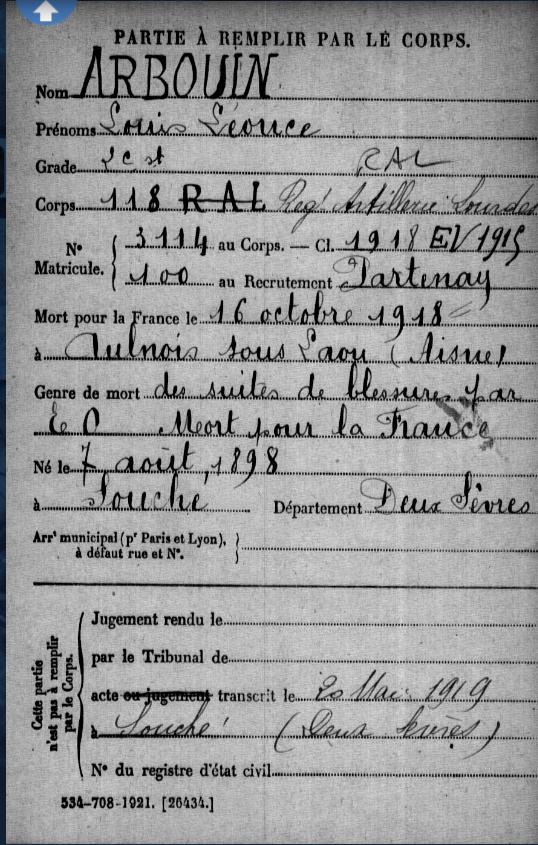 PARTIE À REMPLIR PAR LE CORPS.
Nom ARBOUIN
Prénoms Louis Léonce
Grade 2e st RAL
Corps 118 RAL Regt Artillerie Lourdes
N° Matricule. 3114 au Corps. — Cl. 1918 EV 1915
100 au Recrutement Partenay
Mort pour la France le 16 octobre 1918
à Aulnois sous Laon (Aisne)
Genre de mort des suites de blessures par
E O Mort pour la France
Né le 7 août, 1898
à Souché Département Deux Sèvres
Arrt municipal (pr Paris et Lyon),
à défaut rue et N°.
Cette partie
n'est pas à remplir
par le Corps.
Jugement rendu le
par le Tribunal de
acte ou jugement transcrit le 20 Mai 1919
à Souché (Deux Sèvres)
N° du registre d'état civil
534-708-1921. [26434.]